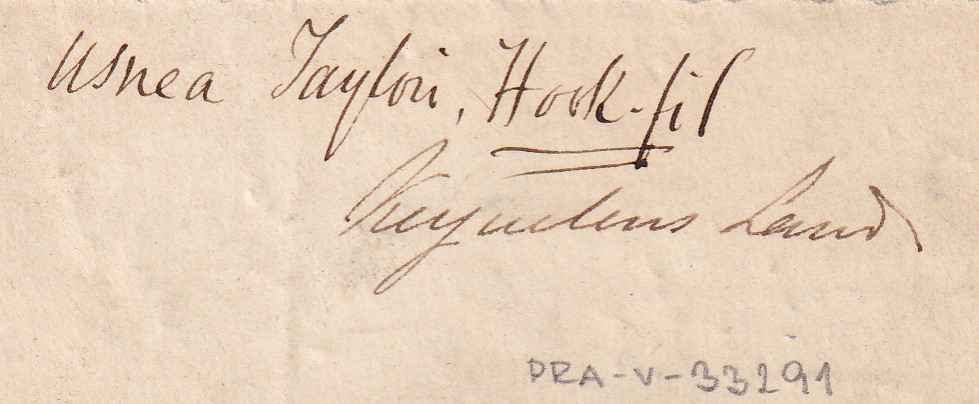 Usnea Taylori, Hook. fil
Kerguelens Land
PRA-V-33291